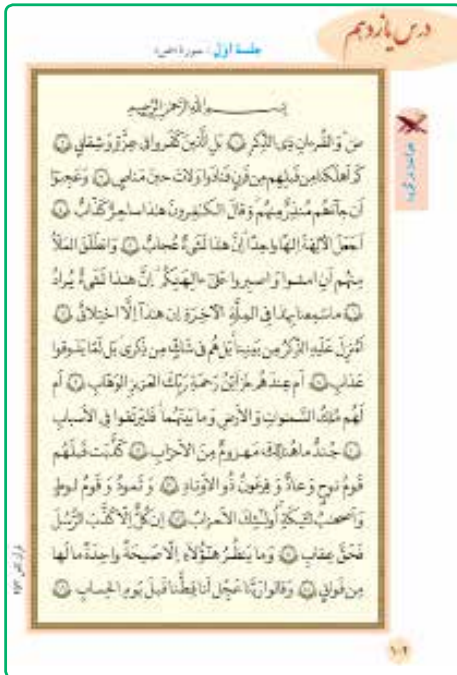 درس یازدهم
جلسهٔ اوّل : سورهٔ «ص»
بسم الله الرحمن الرحیم
صۤ وَ القُرءانِ ذِی الذِّکرِ ۝ بَلِ الَّذینَ کَفَروا فی عِزَّةٍ وَ شِقاقٍ ۝
کَم اَهلَکنا مِن قَبلِهِم مِن قَرنٍ فَنادَوا وَ لاتَ حینَ مَناصٍ ۝ وَ عَجِبوا
اَن جاۤءَهُم مُنذِرٌ مِنهُم وَ قالَ الکـٰفِرونَ هـٰذا ساحِرٌ کَذّابٌ ۝
اَجَعَلَ الآلِهَةَ اِلـٰهًا واحِدًا اِنَّ هـٰذا لَشَیءٌ عُجابٌ ۝ وَ انطَلَقَ المَلَاُ
مِنهُم اَنِ امشوا وَ اصبِروا عَلیٰۤ ءالِهَتِکُم اِنَّ هـٰذا لَشَیءٌ یُرادُ
۝ ما سَمِعنا بِهـٰذا فِی المِلَّةِ الآخِرَةِ اِن هـٰذاۤ اِلَّا اختِلاقٌ ۝
اَءُنزِلَ عَلَیهِ الذِّکرُ مِن بَینِنا بَل هُم فی شَکٍّ مِن ذِکری بَل لَمّا یَذوقوا
عَذابِ ۝ اَم عِندَهُم خَزاۤئِنُ رَحمَةِ رَبِّکَ العَزیزِ الوَهّابِ ۝ اَم
لَهُم مُلکُ السَّمـٰوٰتِ وَ الاَرضِ وَ ما بَینَهُما فَلیَرتَقوا فِی الاَسبابِ
۝ جُندٌ ما هُنالِکَ مَهزومٌ مِنَ الاَحزابِ ۝ کَذَّبَت قَبلَهُم
قَومُ نوحٍ وَ عادٌ وَ فِرعَونُ ذُو الاَوتادِ ۝ وَ ثَمودُ وَ قَومُ لوطٍ
وَ اَصحـٰبُ لـَٔیکَةِ اُولـٰۤئِکَ الاَحزابُ ۝ اِن کُلٌّ اِلّا کَذَّبَ الرُّسُلَ
فَحَقَّ عِقابِ ۝ وَ ما یَنظُرُ هـٰۤؤُلاۤءِ اِلّا صَیحَةً واحِدَةً ما لَها
مِن فَواقٍ ۝ وَ قالوا رَبَّنا عَجِّل لَنا قِطَّنا قَبلَ یَومِ الحِسابِ ۝
۱۰۲